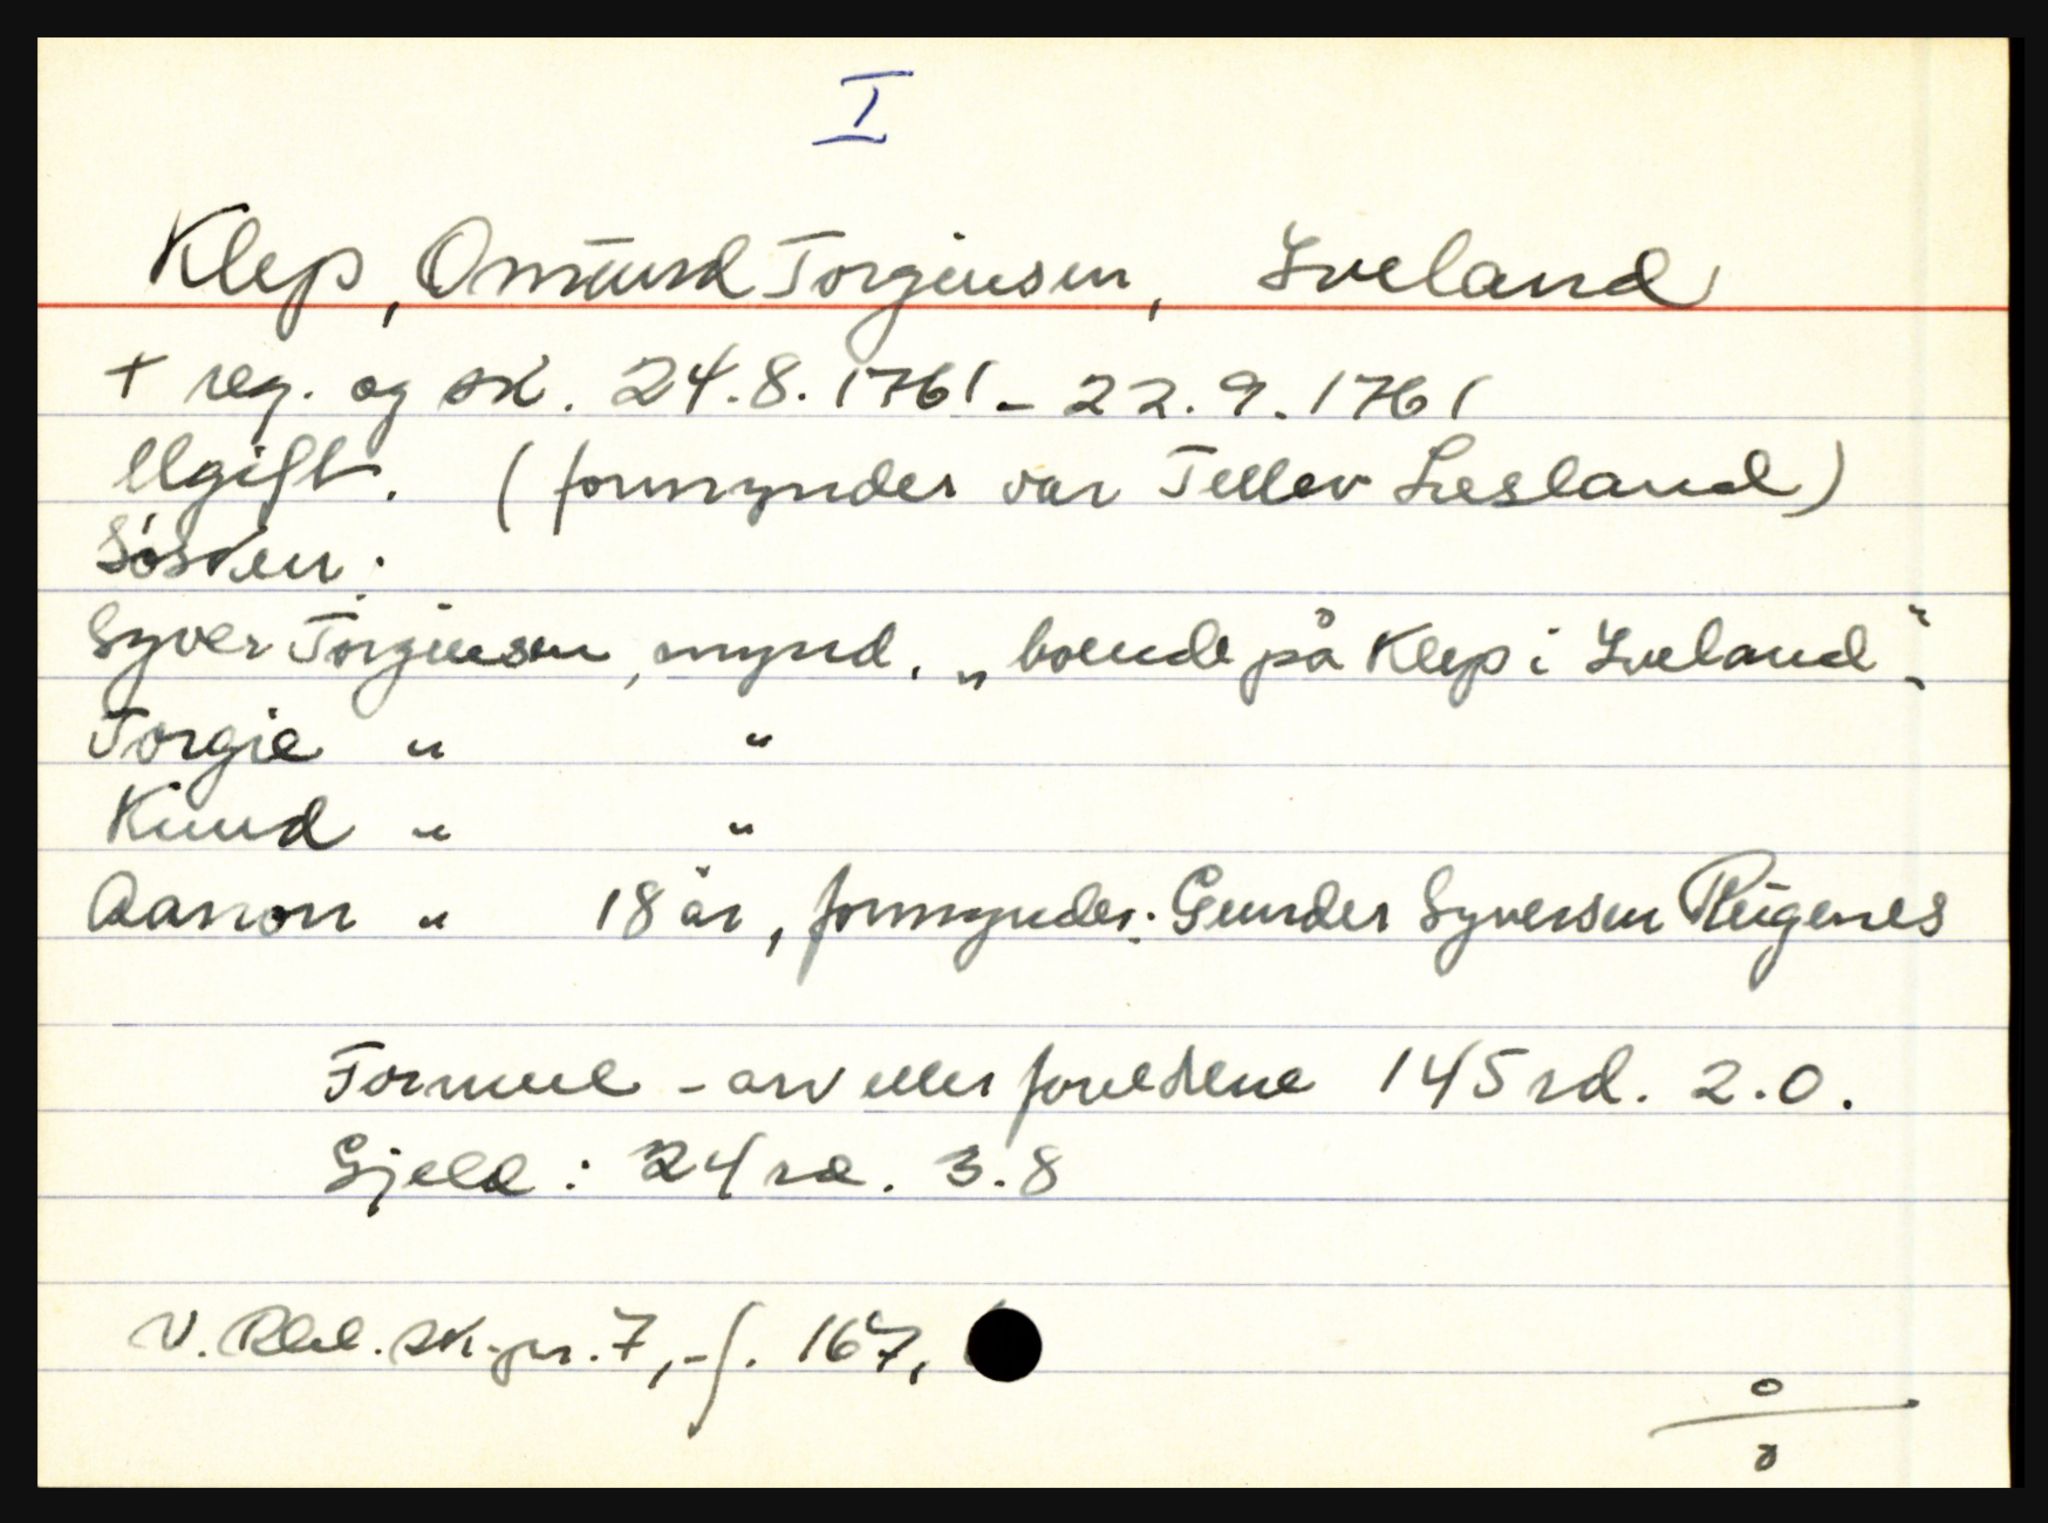 I
Klep, Omund Torgiusen, Iveland
+ reg. og sk. 24.8.1761 - 22.9.1761
Ugift. (formynder var Tellev Liesland)
Søsken:
Syver Torgiusen, mynd. „boende på Klep i Iveland".
Torgie " "
Knud " "
Aanon " 18 år, formynder: Gunder Syversen Rügenes
Formue - arv etter foreldrene 145 rd. 2.0.
Gjeld: 24 rd. 3.8
V. Rbl. sk.pr. 7, - f. 167,